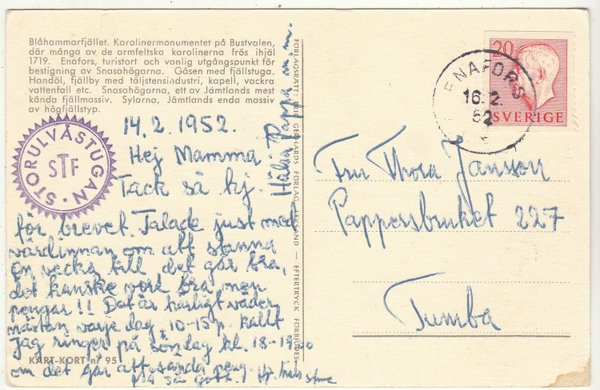 Blåhammarfjället. Karolinermonumentet på Bustvalen,
där många av de armfeltska karolinerna frös ihjäl
1719. Enafors, turistort och vanlig utgångspunkt för
bestigning av Snasahögarna. Gåsen med fjällstuga.
Handöl, fjällby med täljstensindustri, kapell, vackra
vattenfall etc. Snasahögarna, ett av Jämtlands mest
kända fjällmassiv. Sylarna, Jämtlands enda massiv
av högfjällstyp.
STORULVÅSTUGAN
STF
14.2.1952.
Hej Mamma.
Tack så hj.
för brevet. Talade just med
värdinnan om att stanna
en vecka till det går bra,
det kanske vore bra, men
pengar!! Det är härligt väder
nästan varje dag, 10-15 gr. kallt
jag ringer på söndag kl. 18-19
om det går att sända
Hälsa Pappa m.m.
KART-KORT nr 95
FÖRLAGSRÄTT: FÖRLAG, — EFTERTRYCK FÖRBJUDES
20
SVERIGE
ENAFORS
16.2.
52
Fru Thora Jansson
Pappersbruket 227
Tumba